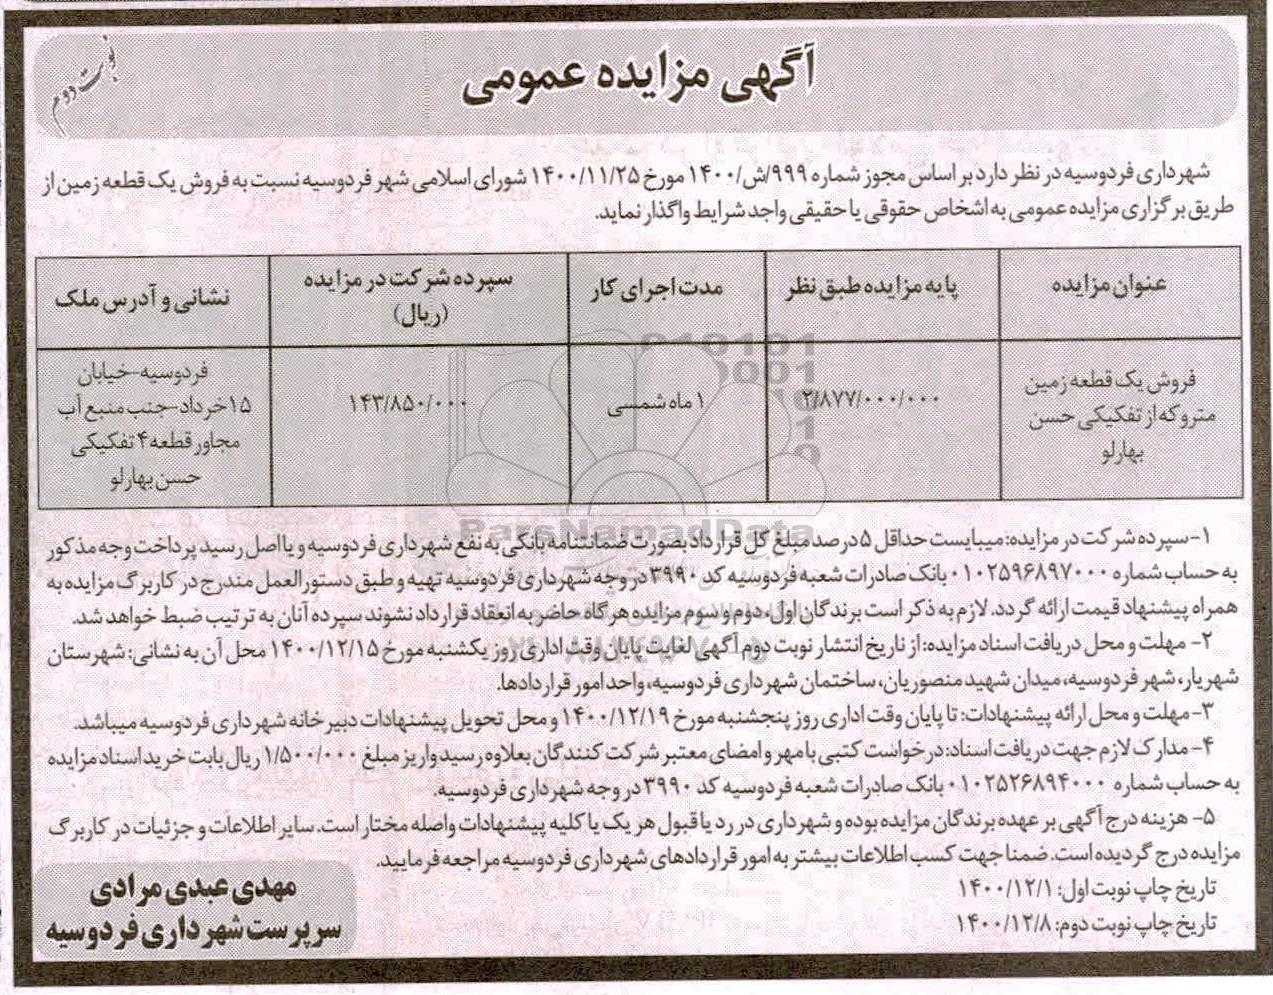 آگهی مزایده عمومی
نوبت دوم
شهرداری فردوسیه در نظر دارد بر اساس مجوز شماره ۹۹۹/ش/۱۴۰۰ مورخ ۱۴۰۰/۱۱/۲۵ شورای اسلامی شهر فردوسیه نسبت به فروش یک قطعه زمین از
طریق برگزاری مزایده عمومی به اشخاص حقوقی یا حقیقی واجد شرایط واگذار نماید.
عنوان مزایده
پایه مزایده طبق نظر
مدت اجرای کار
سپرده شرکت در مزایده
(ریال)
نشانی و آدرس ملک
فروش یک قطعه زمین
متروکه از تفکیکی حسن
بهارلو
۲/۸۷۷/۰۰۰/۰۰۰
۱ ماه شمسی
۱۴۳/۸۵۰/۰۰۰
فردوسیه-خیابان
۱۵خرداد-جنب منبع آب
مجاور قطعه ۴ تفکیکی
حسن بهارلو
ParsNamadData
۱-سپرده شرکت در مزایده: میبایست حداقل ۵ درصد مبلغ کل قرارداد بصورت ضمانتنامه بانکی به نفع شهرداری فردوسیه و یا اصل رسید پرداخت وجه مذکور
به حساب شماره ۰۱۰۲۵۹۶۸۹۷۰۰۰ بانک صادرات شعبه فردوسیه کد ۳۹۹۰ در وجه شهرداری فردوسیه تهیه و طبق دستورالعمل مندرج در کاربرگ مزایده به
همراه پیشنهاد قیمت ارائه گردد. لازم به ذکر است برندگان اول، دوم و سوم مزایده هرگاه حاضر به انعقاد قرارداد نشوند سپرده آنان به ترتیب ضبط خواهد شد.
۲- مهلت و محل دریافت اسناد مزایده: از تاریخ انتشار نوبت دوم آگهی لغایت پایان وقت اداری روز یکشنبه مورخ ۱۴۰۰/۱۲/۱۵ محل آن به نشانی: شهرستان
شهریار، شهر فردوسیه، میدان شهید منصوریان، ساختمان شهرداری فردوسیه، واحد امور قراردادها.
۳-مهلت و محل ارائه پیشنهادات: تا پایان وقت اداری روز پنجشنبه مورخ ۱۴۰۰/۱۲/۱۹ و محل تحویل پیشنهادات دبیرخانه شهرداری فردوسیه میباشد.
۴- مدارک لازم جهت دریافت اسناد: درخواست کتبی با مهر و امضای معتبر شرکت کنندگان بعلاوه رسید واریز مبلغ ۱/۵۰۰/۰۰۰ ریال بابت خرید اسناد مزایده
به حساب شماره ۰۱۰۲۵۲۶۸۹۴۰۰۰ بانک صادرات شعبه فردوسیه کد ۳۹۹۰ در وجه شهرداری فردوسیه.
۵- هزینه درج آگهی بر عهده برندگان مزایده بوده و شهرداری در رد یا قبول هر یک یا کلیه پیشنهادات واصله مختار است. سایر اطلاعات و جزئیات در کاربرگ
مزایده درج گردیده است. ضمنا جهت کسب اطلاعات بیشتر به امور قراردادهای شهرداری فردوسیه مراجعه فرمایید.
تاریخ چاپ نوبت اول: ۱۴۰۰/۱۲/۱
تاریخ چاپ نوبت دوم: ۱۴۰۰/۱۲/۸
مهدی عبدی مرادی
سرپرست شهرداری فردوسیه